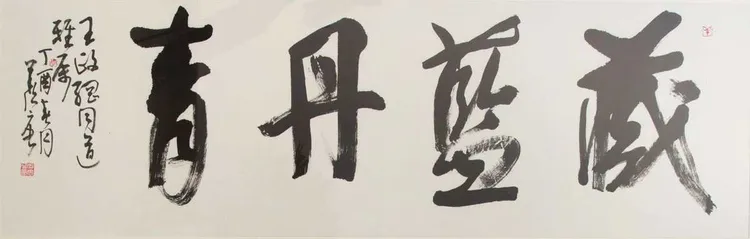 藏藍丹青
王政同道
雅属
丁酉春月